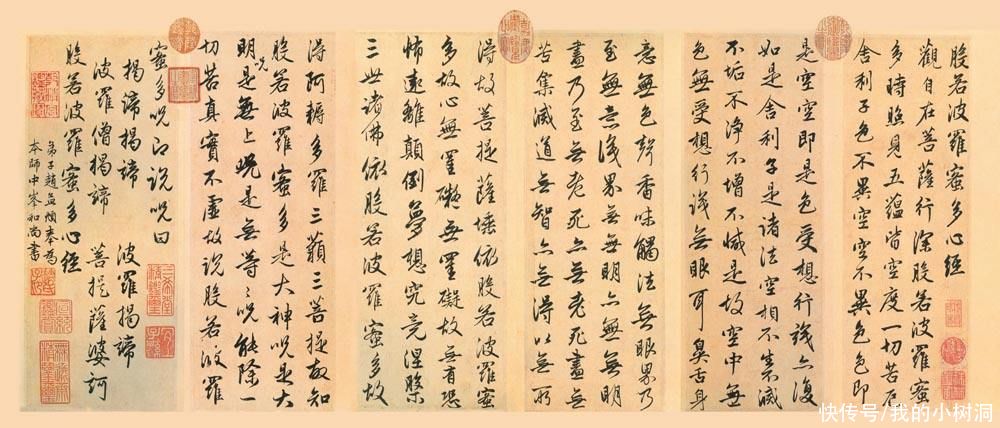 般若波羅蜜多心經
觀自在菩薩行深般若波羅蜜
多時照見五蘊皆空度一切苦厄
舍利子色不異空空不異色色即
是空空即是色受想行識亦復
如是舍利子是諸法空相不生不滅
不垢不淨不增不減是故空中無
色無受想行識無眼耳鼻舌身
意無色聲香味觸法無眼界乃
至無意識界無無明亦無無明
盡乃至無老死亦無老死盡無
苦集滅道無智亦無得以無所
得故菩提薩埵依般若波羅蜜
多故心無罣礙無罣礙故無有恐
怖遠離顛倒夢想究竟涅槃
三世諸佛依般若波羅蜜多故
得阿耨多羅三藐三菩提故知
般若波羅蜜多是大神呪是大
明呪是無上呪是無等〻呪能除一
切苦真實不虛故說般若波羅
蜜多呪即說呪曰
揭諦揭諦 波羅揭諦
波羅僧揭諦 菩提薩婆訶
般若波羅蜜多心經
弟子趙孟頫奉為
本師中峯和尚書
快传号/我的小树洞